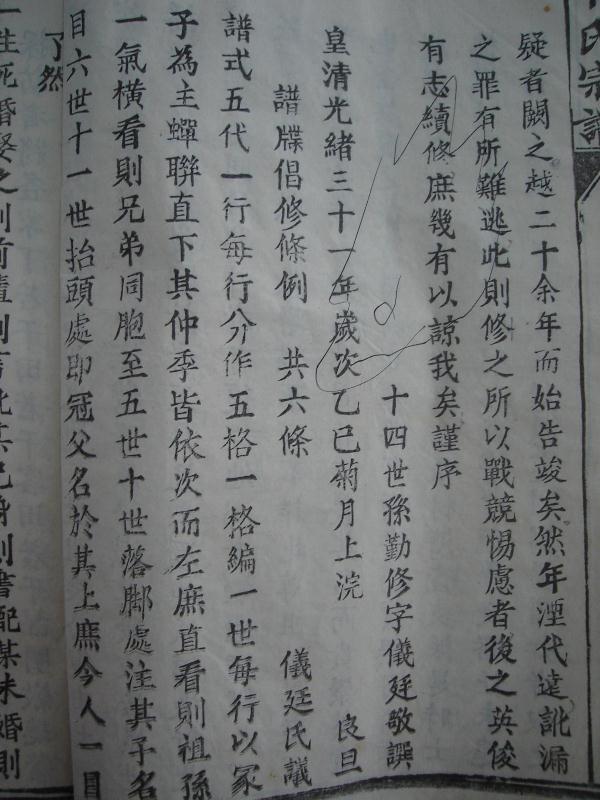 氏宗譜
疑者闕之越二十余年而始告竣矣然年湮代遠訛漏
之罪有所難逃此則修之所以戰競惕慮者後之英俊
有志續修庶幾有以諒我矣謹序
十四世孫勤修字儀廷敬譔
皇清光緒三十一年歲次乙巳菊月上浣 良旦
譜牒倡修條例 共六條 儀廷氏議
譜式五代一行每行分作五格一格編一世每行以冢
子為主蟬聯直下其仲季皆依次而左庶直看則祖孫
一氣橫看則兄弟同胞至五世十世落脚處注其子名
目六世十一世抬頭處即冠父名於其上庶今人一目
了然
一生死婚娶之則前譜則書某已身則書配某未婚則